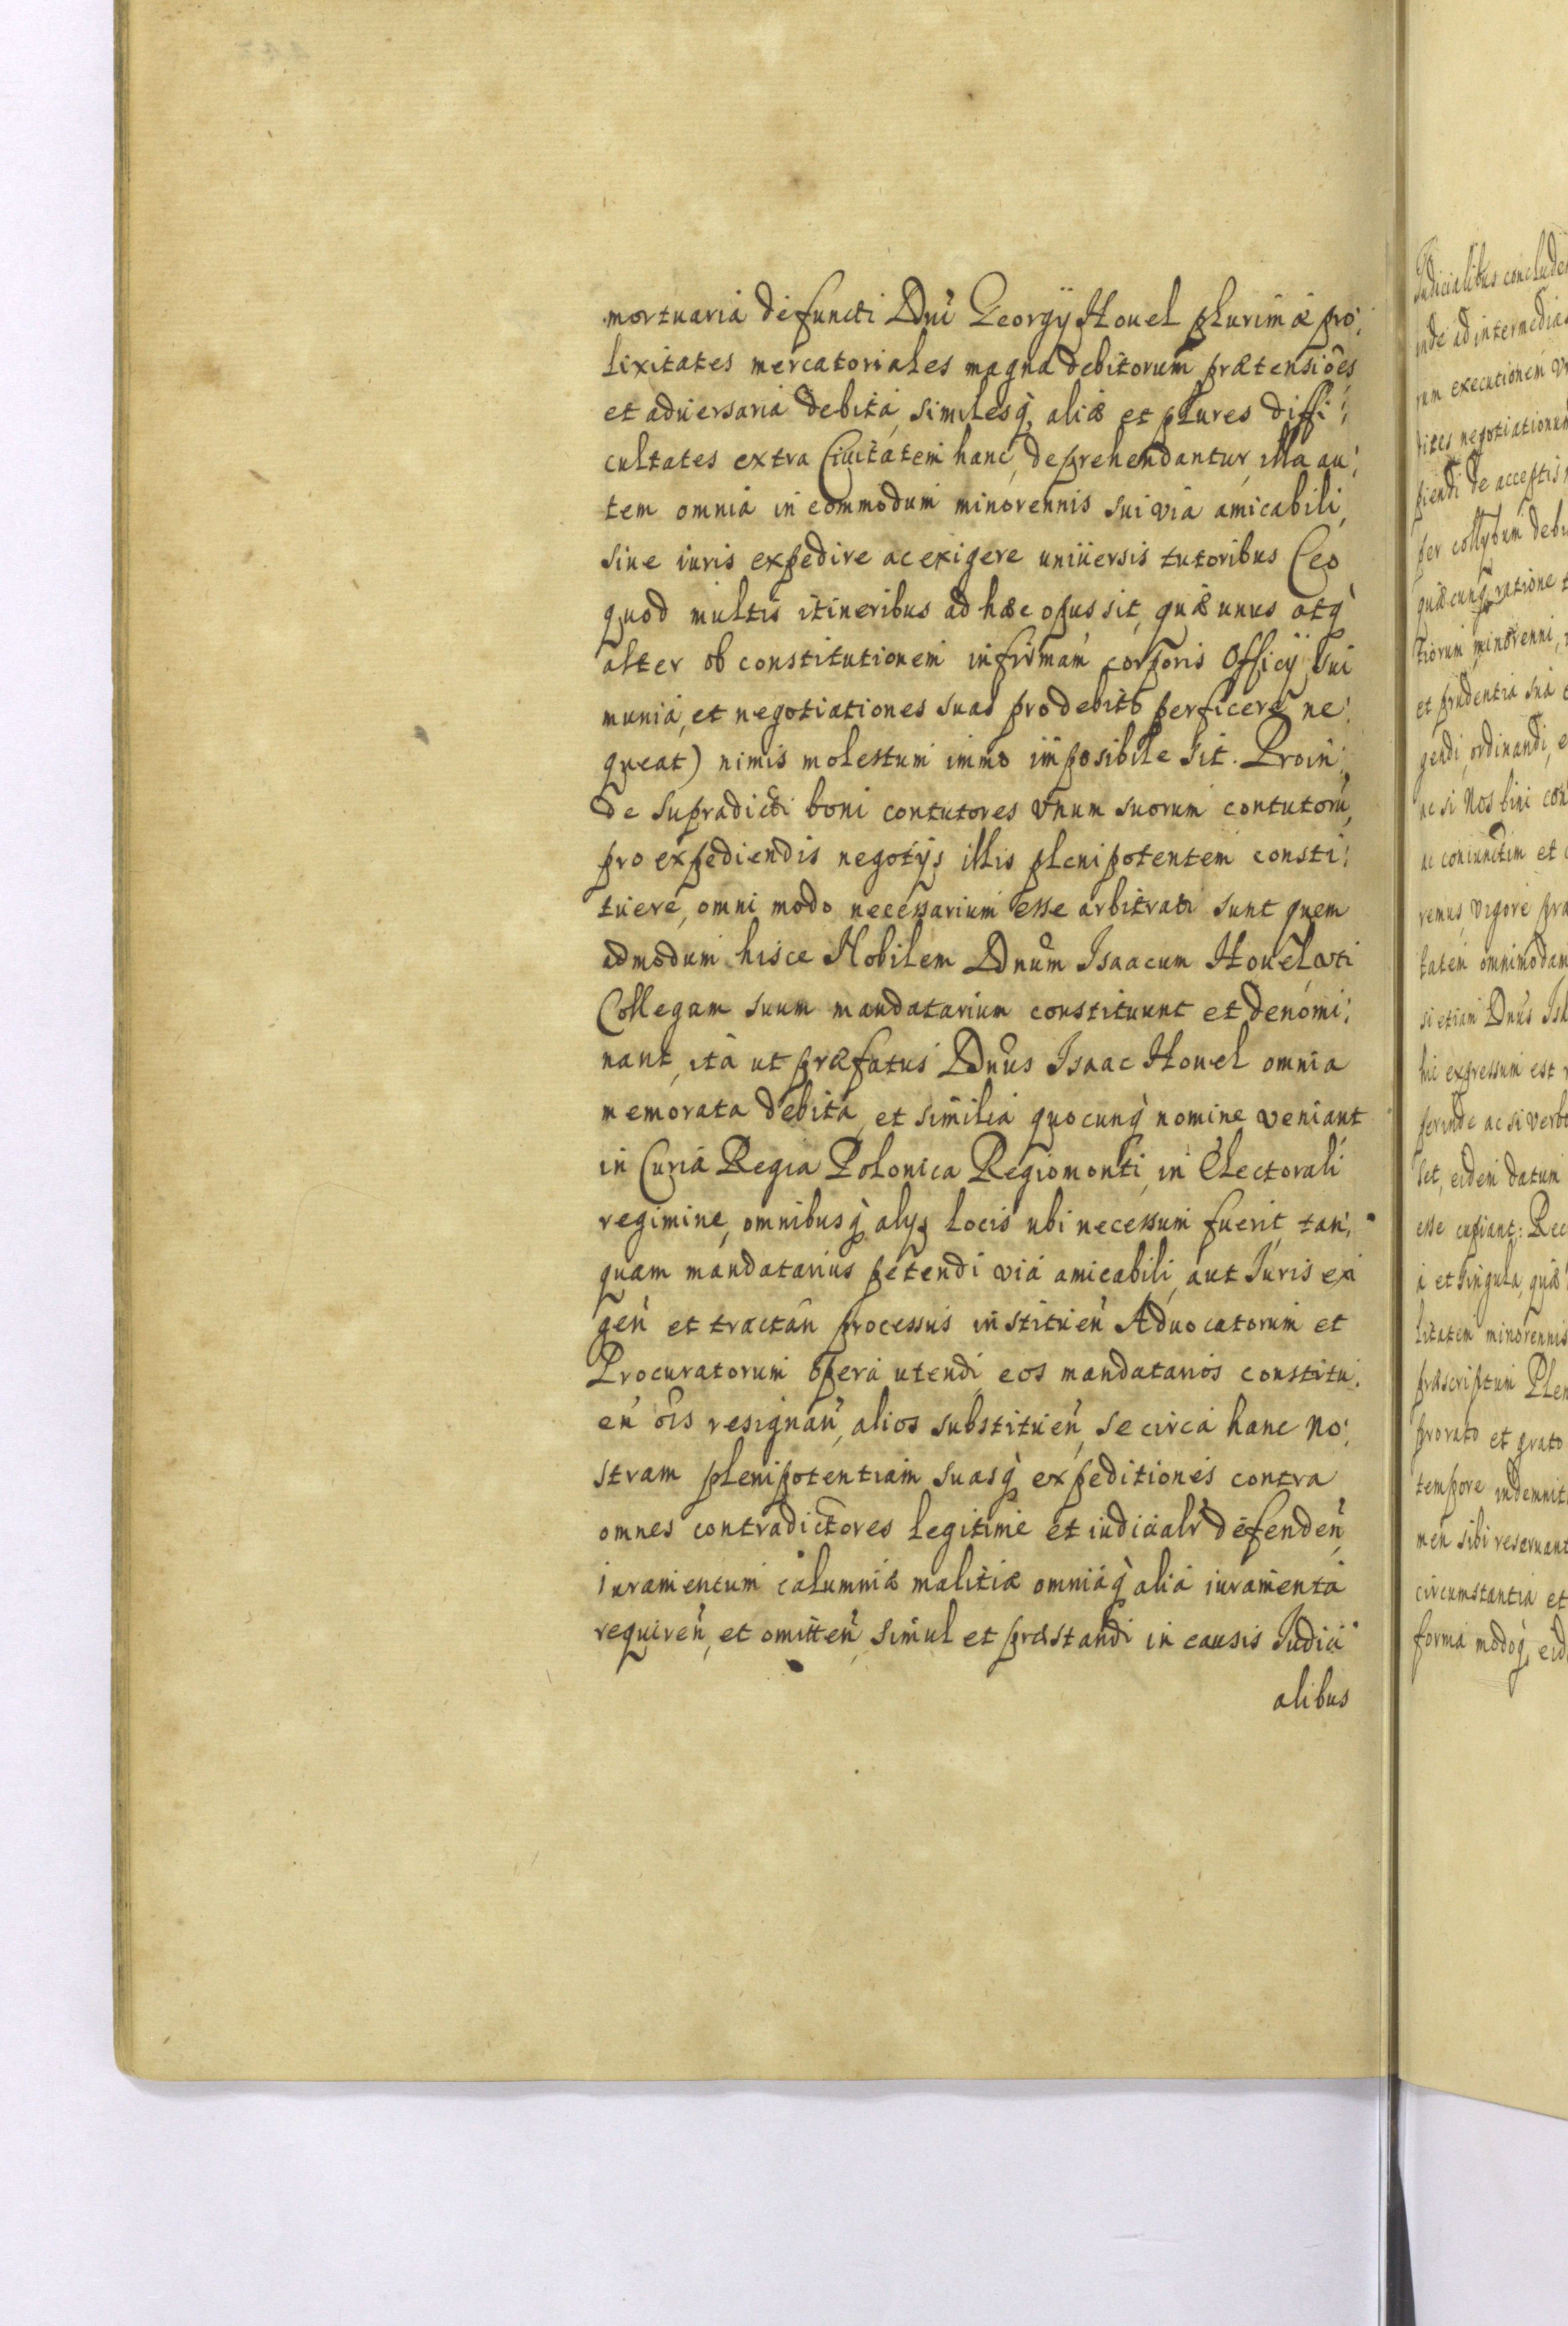 mortuaria defuncti Dni Georgÿ Howel plurimæ pro:
lixitates mercatoriales magna debitorum prætensiões
et aduersaria debita, similesq, aliæ et plures diffi:
cultates extra Ciuitatem hanc, deprehendantur, illa au:
tem omnia in commodum minorennis sui via amicabili,
siue iuris expedire ac exigere uniuersis tutoribus (eo
quod multis itineribus ad hæc opus sit, quæ unus atq
alter ob constitutionem infirmam corporis Officÿ sui
munia, et negotiationes suas pro debito perficere ne:
queat) nimis molestum immo imposibile sit. Proin:
de supradicti boni contutores vnum suorum contutorũ,
pro expediendis negotÿs illis plenipotentem consti:
tuere, omni modo necessarium esse arbitrati sunt quem
admodum hisce Nobilem Dnum Isaacum Howel
Collegam suum mandatarium constituunt et denomi:
nant, ita ut præfatus Dnus Isaac Howel omnia
memorata debita, et similia quocunq nomine veniant
in Curia Regia Polonica Regiomonti, in Electorali
regimine, omnibusq alys locis ubi necessum fuerit, tan:
quam mandatarius petendi via amicabili, aut Iuris exi
gen et tractan processus instituen Aduocatorum et
Procuratorum opera utendi, eos mandatarios constitu:
en ois resignan, alios substituen, se circa hanc no:
stram plenipotentiam suasq expeditiones contra
omnes contradictores legitime et iudicialr defenden,
iuramentum calumniæ malitiæ omniaq alia iuramenta
requiren, et omitten, simul et præstandi in causis Iudici
alibus
Iudicialibus conclude
inde ad intermedia
executionem
negotiationum
de acceptis
per collybum deb
quæcunq ratione
minorenni,
et prudentia sua
ordinandi,
ac si Nos bini con
ac coniunctim et
remus, vigore pra
tatem omnimodam
si etiam Dnus
expressum est
perinde ac si verb
set, eidem datum
esse cupiant: Rec
et singula, quæ
litatem minorennis
præscriptum Plen
pro rato et grato
tempore indemnit
men sibi reseruant
circumstantia et
forma modoq, eid